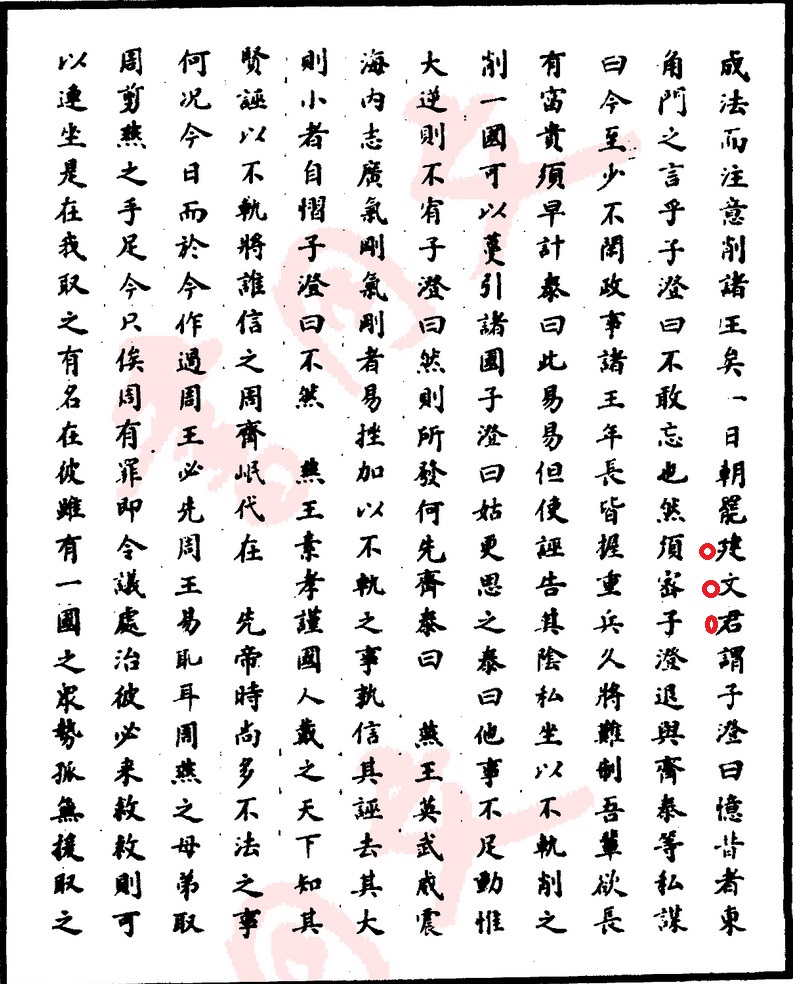 成法而注意削諸王矣一日朝罷建文君謂子澄曰憶昔者東
角門之言乎子澄曰不敢忘也然須宻子澄退與齊泰等私謀
曰今至少不閑政事諸王年長皆握重兵久將難制吾輩欲長
有富貴須早計泰曰此易易但使誣告其陰私坐以不軌削之
削一國可以蔓引諸國子澄曰姑更思之泰曰他事不足動惟
大逆則不宥子澄曰然則所發何先齊泰曰　燕王英武威震
海內志廣氣剛氣剛者易挫加以不軌之事孰信其誣去其大
則小者自慴子澄曰不然　燕王素孝謹國人戴之天下知其
賢誣以不軌將誰信之周齊岷代在　先帝時尚多不法之事
何況今日而於今作過周王必先周王易耻耳周燕之母弟取
周剪燕之手足今只俟周有罪即令議處治彼必来救救則可
以連坐是在我取之有名在彼雖有一國之衆勢孤無援取之